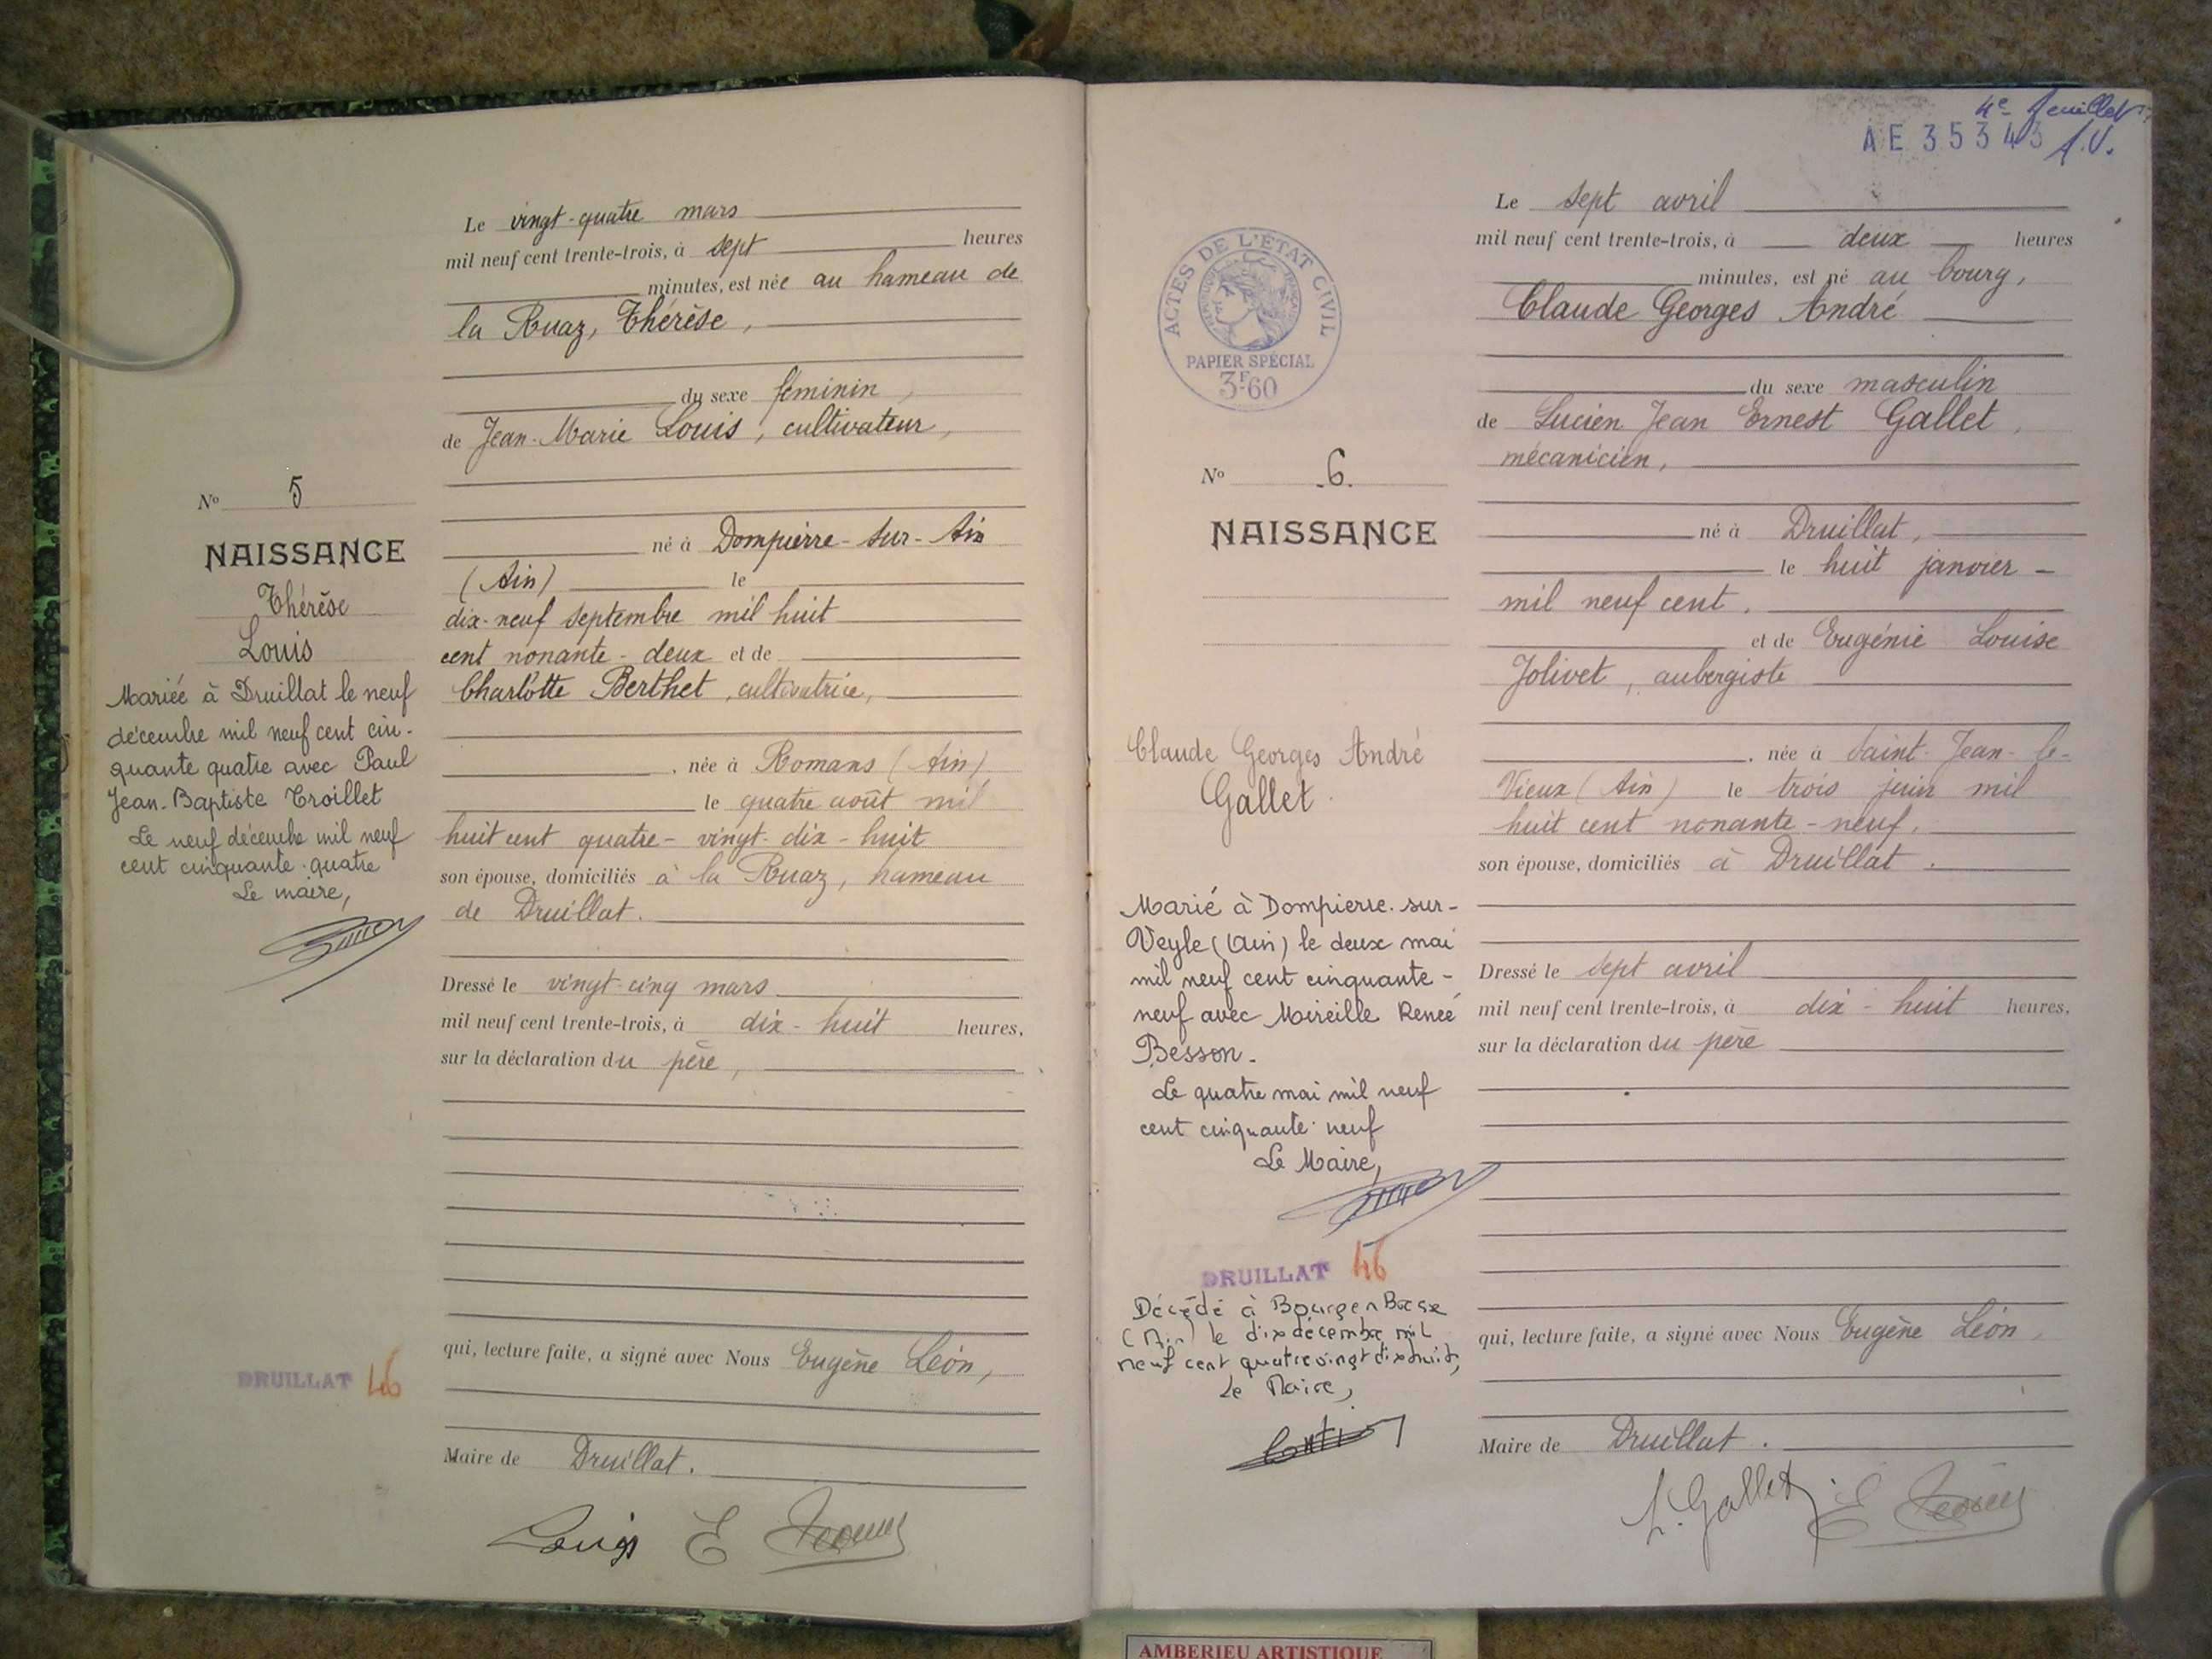 Le vingt-quatre mars
mil neuf cent trente-trois, à sept heures
minutes, est née au hameau de
la Ruaz, Thérèse,
du sexe féminin,
de Jean-Marie Louis, cultivateur,
né à Dompierre-sur-Ain
(Ain) le
dix-neuf septembre mil huit
cent nonante-deux et de
Charlotte Berthet, cultivatrice,
, née à Romans (Ain),
le quatre août mil
huit cent quatre-vingt-dix-huit
son épouse, domiciliés à la Ruaz, hameau
de Druillat.
Dressé le vingt-cinq mars
mil neuf cent trente-trois, à dix-huit heures,
sur la déclaration du père,
qui, lecture faite, a signé avec Nous Eugène Léon,
Maire de Druillat.
Louis E
No 5
NAISSANCE
Thérèse
Louis
Mariée à Druillat le neuf
décembre mil neuf cent cin-
quante quatre avec Paul
Jean-Baptiste Troillet
Le neuf décembre mil neuf
cent cinquante-quatre
Le maire,
DRUILLAT 46
4e feuillet
AE 35343 A.V.
Le sept avril
mil neuf cent trente-trois, à deux heures
minutes, est né au bourg,
Claude Georges André
du sexe masculin
de Lucien Jean Ernest Gallet,
mécanicien,
né à Druillat,
le huit janvier -
mil neuf cent,
et de Eugénie Louise
Jolivet, aubergiste
, née à Saint-Jean-le-
Vieux (Ain) le trois juin mil
huit cent nonante-neuf,
son épouse, domiciliés à Druillat.
Dressé le sept avril
mil neuf cent trente-trois, à dix-huit heures,
sur la déclaration du père
qui, lecture faite, a signé avec Nous Eugène Léon,
Maire de Druillat.
L. Gallet E
ACTES DE L'ÉTAT CIVIL
PAPIER SPÉCIAL
3F60
No 6.
NAISSANCE
Claude Georges André
Gallet.
Marié à Dompierre-sur-
Veyle (Ain) le deux mai
mil neuf cent cinquante-
neuf avec Mireille Renée
Besson.
Le quatre mai mil neuf
cent cinquante-neuf
Le Maire,
DRUILLAT 46
Décédé à Bourg en Bresse
(Ain) le dix décembre mil
neuf cent quatre vingt dix huit,
Le Maire,
AMBERIEU ARTISTIQUE